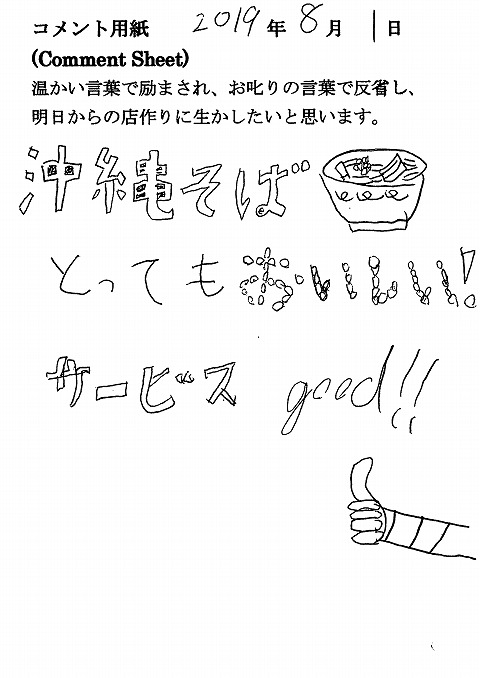 コメント用紙 2019年8月1日
(Comment Sheet)
温かい言葉で励まされ、お叱りの言葉で反省し、
明日からの店作りに生かしたいと思います。
沖縄そば
とっても おいしい!
サービス good!!